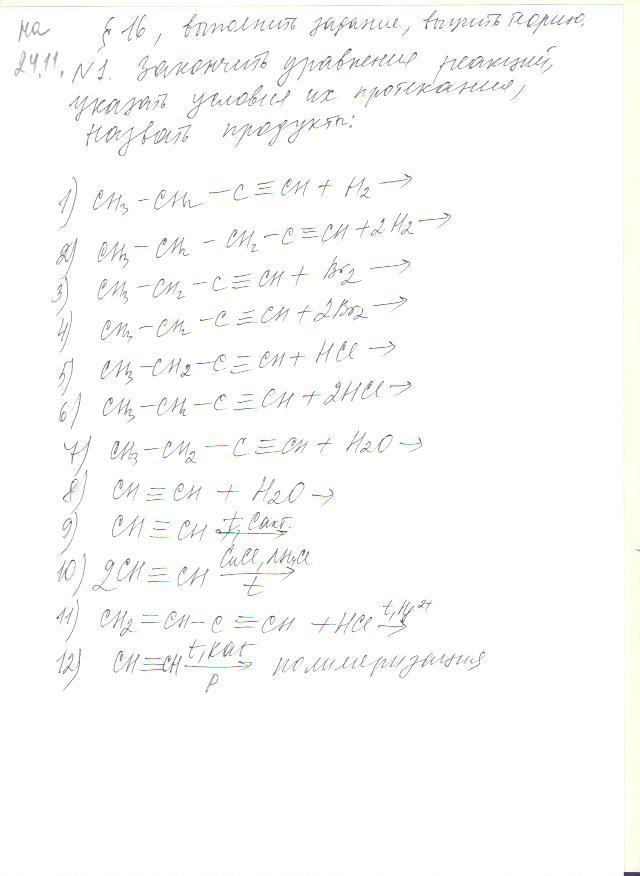 на § 16, выполнить задание, выучить теорию.
24.11. N1. Закончить уравнения реакций,
указать условия их протекания,
назвать продукты:
1) CH₃-CH₂-C≡CH + H₂ →
2) CH₃-CH₂-CH₂-C≡CH + 2H₂ →
3) CH₃-CH₂-C≡CH + Br₂ →
4) CH₃-CH₂-C≡CH + 2Br₂ →
5) CH₃-CH2-C≡CH + HCl →
6) CH₃-CH₂-C≡CH + 2HCl →
7) CH₃-CH₂-C≡CH + H₂O →
8) CH≡CH + H₂O →
9) CH≡CH t, Cакт. →
10) 2CH≡CH CuCl, NH₄Cl t →
11) CH₂=CH-C≡CH + HCl t, Hg²⁺ →
12) CH≡CH t, кат P → полимеризация